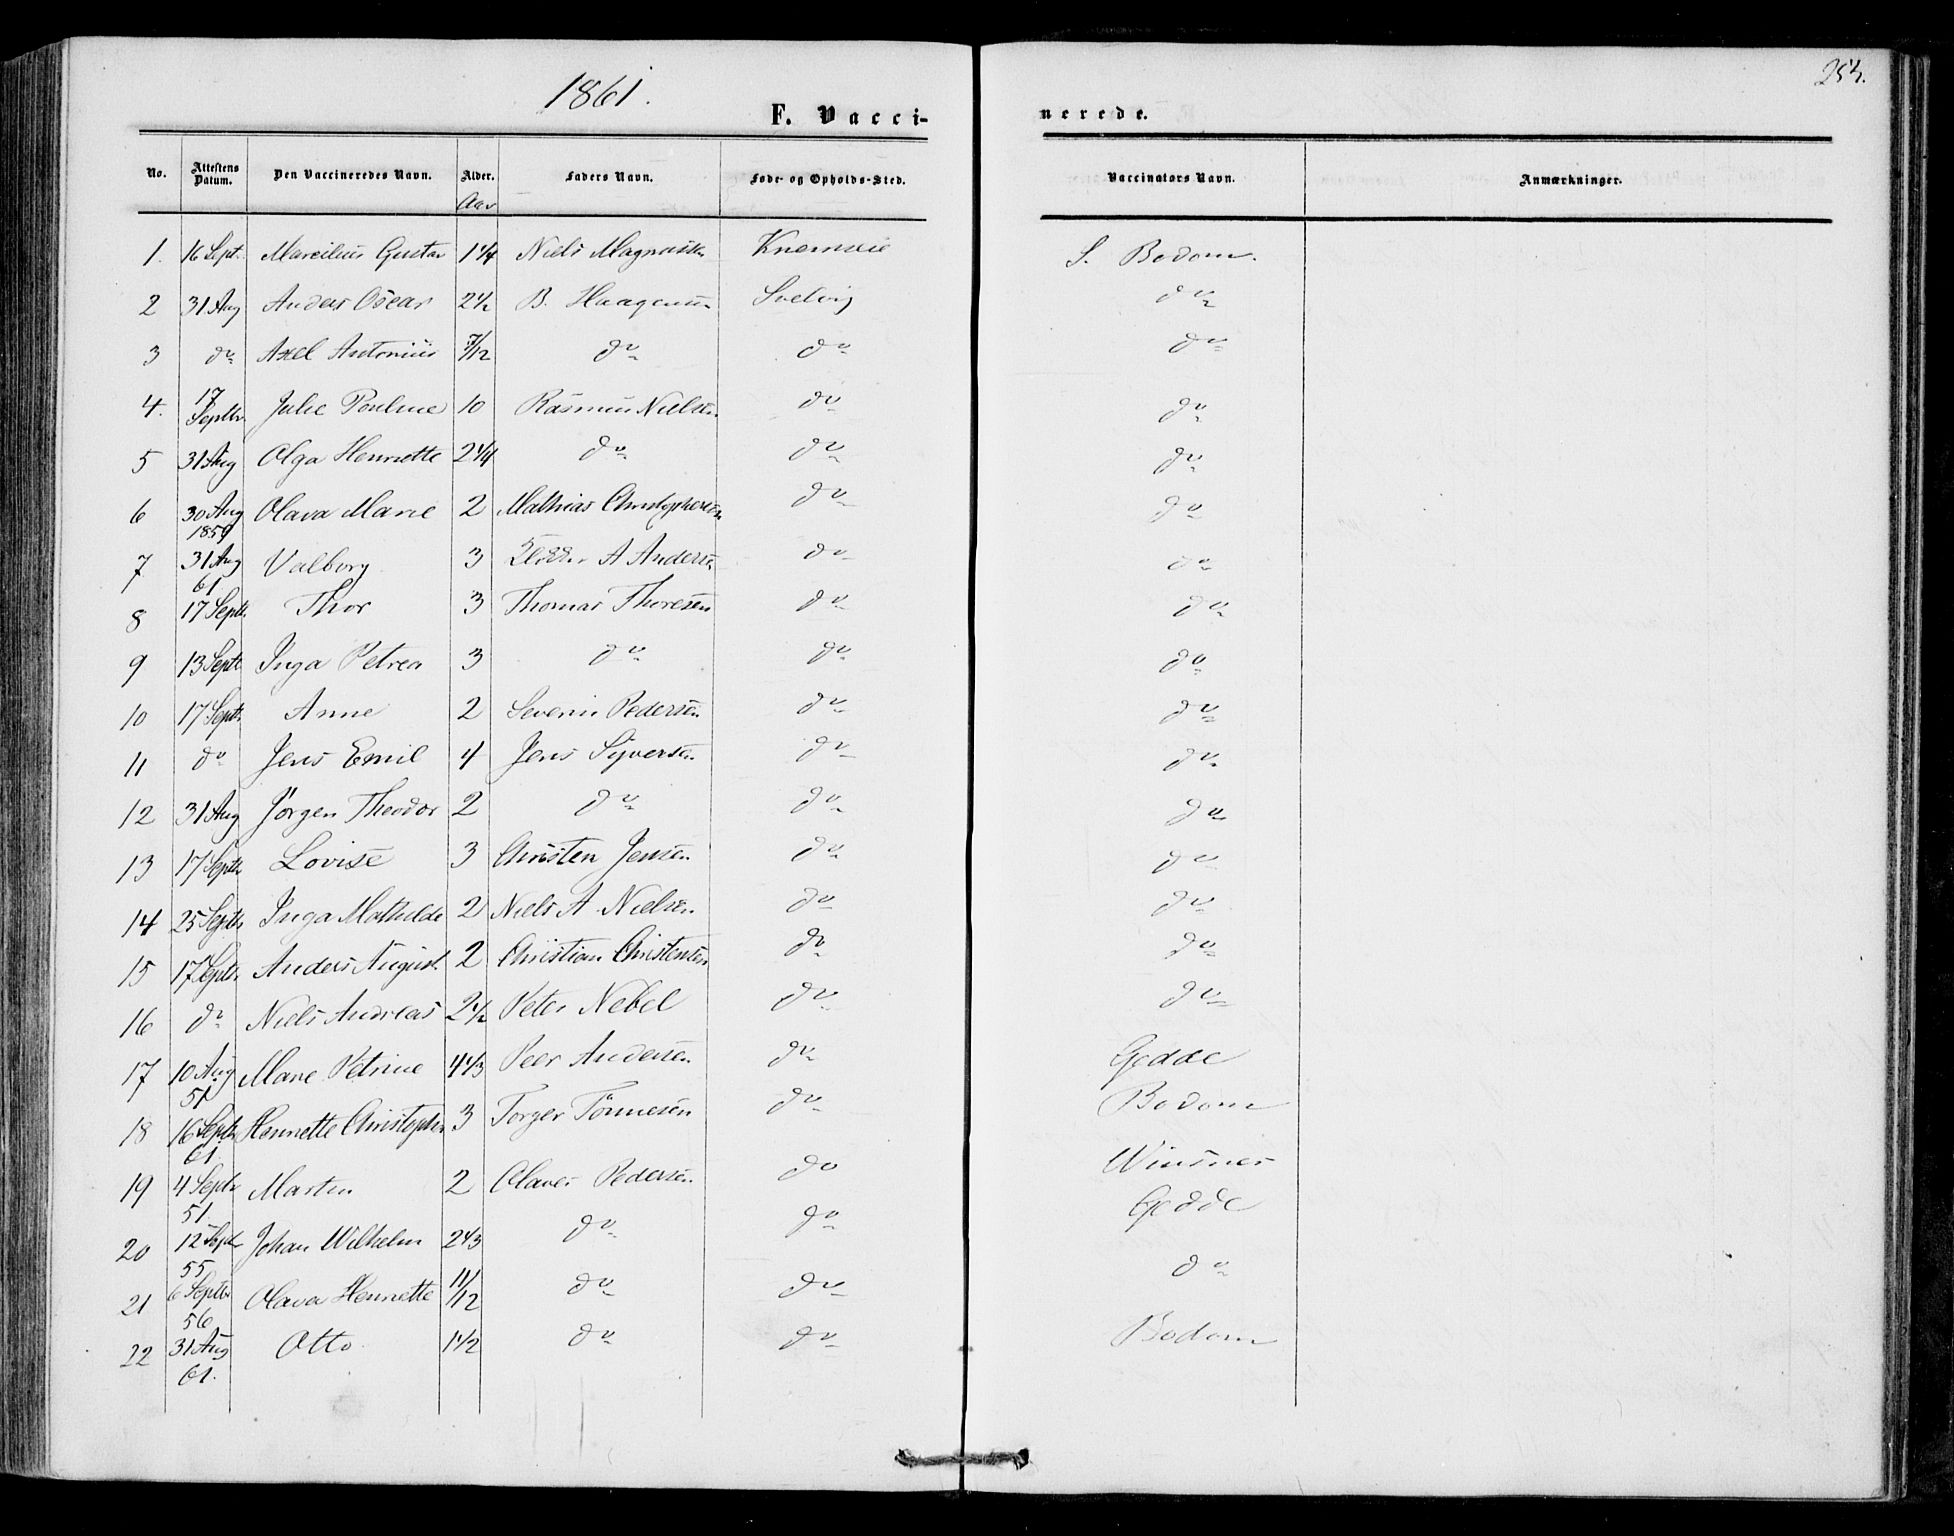 1861.
254.
F. Vacci-
nerede.
No. Attestens Datum. Den Vaccineredes Navn. Alder. Faders Navn. Føde- og Opholds-Sted. Vaccinators Navn. Anmærkninger.
Aar
1. 16 Sept. Marcilius Gustav 1 1/4 Niels S. Bodom.
2 31 Aug Anders Oscar 2 1/2 B. Haagensen Svelvig do
3 do Axel Antonius 7/12 do do do
4. 17 Septbr. Julie Pouline 10 Rasmus Nielsen do do
5 31 Aug Olga Henriette 2 1/4 do do do
6 30 Aug 1859 Olava Marie 2 Mathias Christophersen do do
7 31 Aug 61 Valborg 3 A Andersen do do
8 17 Septbr. Thor 3 Thomas Thoresen do do
9 13 Septbr Inga Petrea 3 do do do
10 17 Septbr Anne 2 Severin Pedersen do do
11 do Jens Emil 4 Jens Syversen do do
12 31 Aug Jørgen Theodor 2 do do do
13 17 Septbr Lovise 3 Christen Jensen do do
14 25 Septbr Inga Mathilde 2 Niels A. Nielsen do do
15 17 Septbr Anders August 2 Christian Christensen do do
16 do Niels Andreas 2 1/2 Peter Nebel do do
17 10 Aug 51 Maren Petrine 4 1/3 Peer Andersen do Gedde
18 16 Septbr 61 Henriette 3 Torger Tönnesen do Bodom
19 4 Septbr 51 Marten 2 Olaves Pedersen do Winsnes
20 12 Septbr 55 Johan Wilhelm 2 1/3 do do Gedde
21 6 Septbr 56 Olava Henriette 11/12 do do do
22 31 Aug 61. Otto 1 1/2 do do Bodom